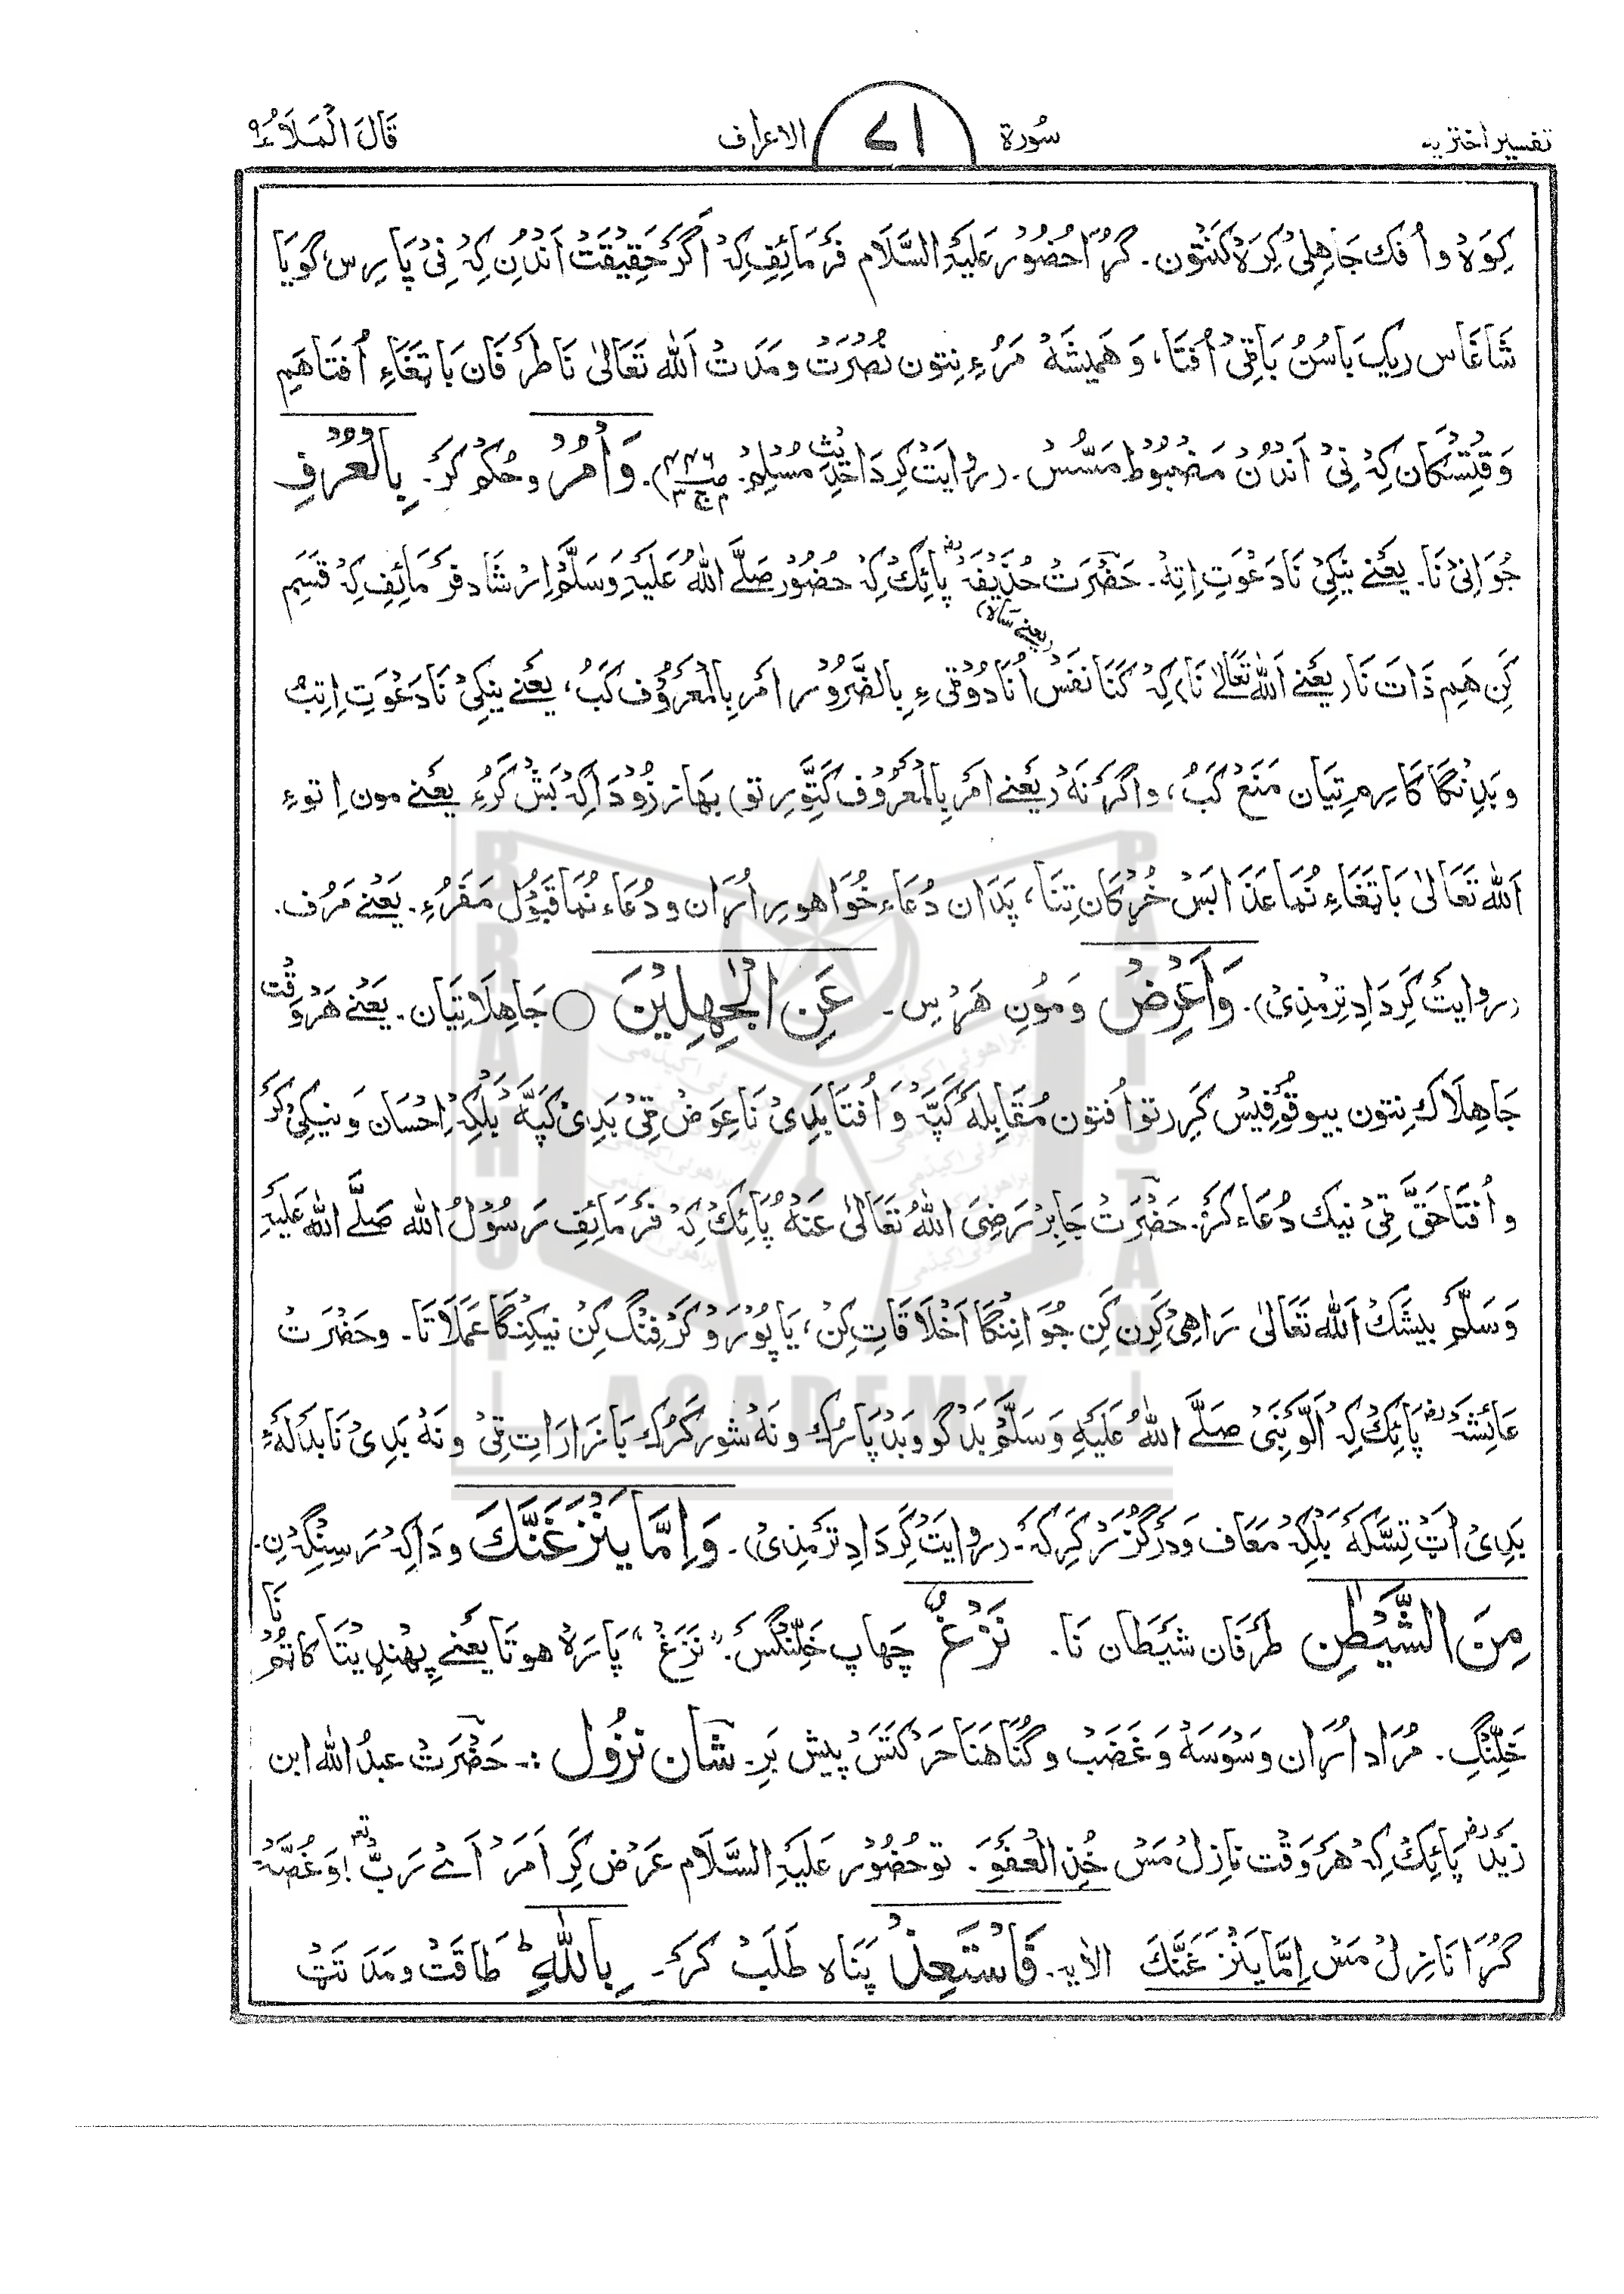 تفسیر اختریہ سُورۃ ۷۱ الاعراف قَالَ الْمَلَاُ ۹
کِوَہْ و اُفک جَاہِلِیْ کِرَہْ کَنْتُون۔ گُڑَا حُضُوْر عَلَیْہِ السَّلَام فَرمَائِفِ کِہْ اَگَرْ حَقِیْقَتْ اَنْدُن کِہْ نِیْ پَارِس گویَا
شَاغَاس رِیک بَاسُن بَاتِیْ اُفتَا، وَ ہَمِیْشَہْ مَرُءِ نِتون نُصْرَتْ و مَدَت اَللہ تَعَالیٰ نَا طرَفَان بَاتِغَاءِ اُفتَا ہَمِ
وَقْتِسْکَان کِہْ نِیْ اَنْدُنْ مَضْبُوْط مَسُّسْ۔ (رِوایَتْ کرِ دَا حَدِیْثِ مُسْلِم۔ ص ج ۲)۔ وَاْمُرْ و حُکم کَرْ۔ بِالْعُرْفِ
جُوَانِیْ نَا۔ یَعْنے نِیْکِیْ نَا دَعْوَت اِتِہْ۔ حَضْرَتْ حُذَیْفَہْ رض پَائِکْ کِہْ حُضُوْر صَلَّے اللہُ عَلَیْہِ وَسَلَّمْ اِرْشَاد فَرمَائِفِ کِہْ قَسَمِ
کَنِ ہَمِ ذَات نَا (یَعْنے اَللہ تَعَالیٰ نَا) کِہْ کَنَا نَفَس (یعنے ساہ) اُنَا دُوْتِیْ ءِ بِالضَّرُوْر اَمر بِالْمَعْرُوْف کَبْ، یَعْنے نِیْکِیْ نَا دَعْوَت اِتِبْ
و بَدِنْگَا کَارِم تِیَان مَنَعْ کَبْ، و اگر نَہْ (یَعْنے اَمر بِالْمَعْرُوْف کَتَّوْرِ تو) بھَاز زُوْد دَا کِہْ بَشْ کَرُءِ یَعْنے مون اِتوءِ
اَللہ تَعَالیٰ بَاتِغَاءِ نُمَا عَذَابَسْ خُرْکَان تِنَا، پَدَان دُعَاء خُوَاھُوْرِ اُرَان و دُعَاء نُمَا قَبُوْل مَفَرُءِ۔ یَعْنے مَرُف۔
(رِوایَتْ کَرِ دَادِ تِرْمِذِیْ)۔ وَاَعْرِضْ و مُونِ ھَرْسِ۔ عَنِ الْجٰھِلِیْنَ ○ جَاھِلَا تِیَان۔ یَعْنے ھَرْ وَقْت
جَاھِلَاک نِتون بیوقُوْفِیْس کَرِر تو اُفتون مُقَابِلَہْ کَپَّہْ وَ اُفتَا بَدِیْ نَا عِوَضْ تِیْ بَدِیْ کَپَّہْ بَلْکِہْ اِحْسَان وَ نِیْکِیْ کَرْ
و اُفتَا حَقَّ تِیْ نیک دُعَاء کَرْ۔ حَضْرَتْ جَابِرْ رَضِیَ اللہُ تَعَالیٰ عَنْہُ پَائِکْ کِہْ فَرمَائِفِ رَسُوْلُ اللہ صَلَّے اللہُ عَلَیْہِ
وَسَلَّمْ بِیْشَکْ اَللہ تَعَالیٰ رَاھِیْ کَرِن کَنِ جُوَانِنْگَا اَخْلَاقَاتِ کِنْ، یَا پُوْرَوْ کَرْفِنْگ کِنْ نیکِنْگَا عَمَلَاتَا۔ و حَضْرَتْ
عَائِشَہْ رض پَائِکْ کِہْ اَلَّوْ نَبِیْ صَلَّے اللہُ عَلَیْہِ وَسَلَّمْ بَدْ گو و بَدْ پَارُک و نَہْ شور کَرُکْ بَازَارَاتِ تِیْ و نَہْ بَدِیْ نَا بَدَلَہْ ءِ
بَدِیْ اَٹ تِسَّکَہْ بَلْکِہْ مَعَاف و دَرْ گُزَرْ کَرِکَہْ۔ (رِوایَتْ کَرِ دَادِ تِرْمِذِیْ)۔ وَاِمَّا یَنْزَغَنَّکَ و دَا کِہْ رَسِنْگِہْ نِ۔
مِنَ الشَّیْطٰنِ طَرَفَان شَیْطَان نَا۔ نَزْغٌ چَھاپ خَلِنْگَسْ۔ "نَزَغْ" پَارَہْ ھوتَا یَعْنے پِھِنْدِیْتَا کَانُمْ نَا
خَلِّنْگِ۔ مُرَاد اُرَان وَسْوَسَہْ وَ غَضَبْ و گُنَاھَنَا حَرکَتَسْ پیش بَرِ۔ شَان نُزُوْل :۔ حَضْرَتْ عبدُ اللہ ابن
زَیْد رض پَائِکْ کِہْ ھَر وَقْت نَازِلْ مَسْ خُذِ الْعَفْوَ۔ تو حُضُوْر عَلَیْہِ السَّلَام عَرَضْ کَرِ اَمَرْ اَےْ رَبّ! وَ غُصَّہْ
گُڑَا نَازِلْ مَسْ اِمَّا یَنْزَغَنَّکَ الاٰیہ۔ فَاسْتَعِذْ پَنَاہ طَلَبْ کَرْ۔ بِاللّٰہِ ؕ طَاقَتْ و مَدَ تَتْ
BRAHUI ACADEMY PAKISTAN
براھوئی اکیڈمی